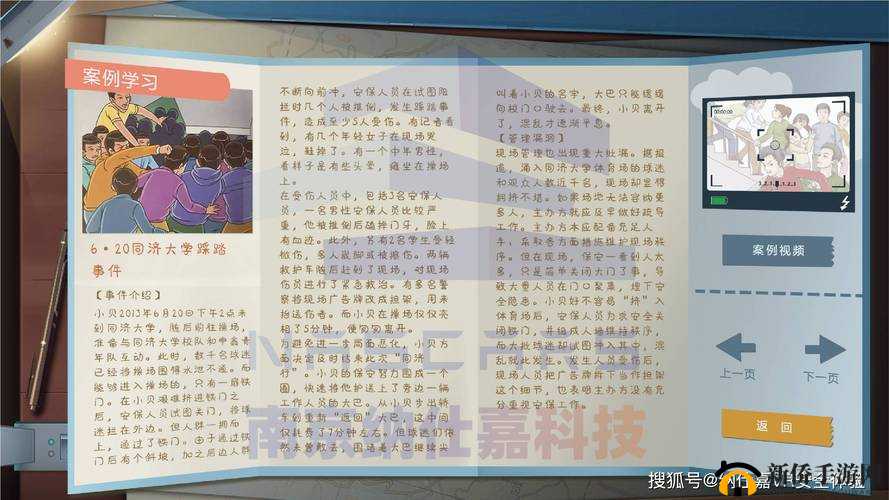 案例学习
6·20同济大学踩踏
事件
【事件介绍】
小贝2013年6月20日下午2点来
到同济大学，随后前往操场，
准备与同济大学校队和申鑫青
年队互动。此时，数千名球迷
已经将操场围得水泄不通。而
能够进入操场的，只有一扇铁
门。在小贝艰难挤进铁门之
后，安保人员试图关门，将球
迷拦在外边。但人群一拥而
上，通过了铁门。由于通过铁
门后有个斜坡，加之后边人群
不断向前冲，安保人员在试图阻
拦时几个人被推倒，发生踩踏事
件，造成至少5人受伤。有记者看
到，有几个年轻女子在现场哭
泣，鞋掉了。有一个中年男性，
看样子是有些头晕，瘫坐在操场
上。
在受伤人员中，包括3名安保人
员，一名男性安保人员比较严
重，他被推倒后磕掉门牙，脸上
有血迹。此外，另有2名学生受轻
微伤，多人崴脚或被擦伤。两辆
救护车随后赶到了现场，对现场
伤员进行了紧急救治。有多名警
察将现场广告牌改成担架，用来
抬送伤者。而小贝在操场仅仅亮
相了5分钟，便匆匆离开。
为避免进一步局面恶化，小贝方
面决定及时结束此次“同济
行”。小贝的保安努力围成一个
圈，快速将他护送上了旁边一辆
工作人员的大巴。从小贝步出轿
车到重新“返回”大巴，这中间
仅耗费了7分钟左右。但球迷们依
然未曾散去，围堵着大巴继续尖
叫着小贝的名字，大巴只能缓缓
向校门口驶去。最终，小贝离开
了，混乱才逐渐平息。
【管理漏洞】
现场管理也出现重大纰漏。据报
道，涌入同济大学体育场的球迷
和观众人数近千名，现场却显得
拥挤不堪。如果场地无法容纳更
多人，主办方就应及早做好疏导
工作。主办方本应配备充足人
手，采取多方面措施维护现场秩
序。但在现场，保安一看到人太
多，只是简单关闭大门了事，导
致大量人员在门口聚集，埋下安
全隐患。小贝好不容易“挤”入
体育场后，安保人员为求安全关
闭铁门，并组成人墙维持秩序，
而大批球迷却试图冲入其中，混
乱就此发生。发生人员受伤后，
现场人员把广告牌拆下当作担架
这个细节，也表明主办方没有充
分重视安保工作。
00:00:00
案例视频
上一页
下一页
返回
搜狐号@纳仕嘉
新侨手游网